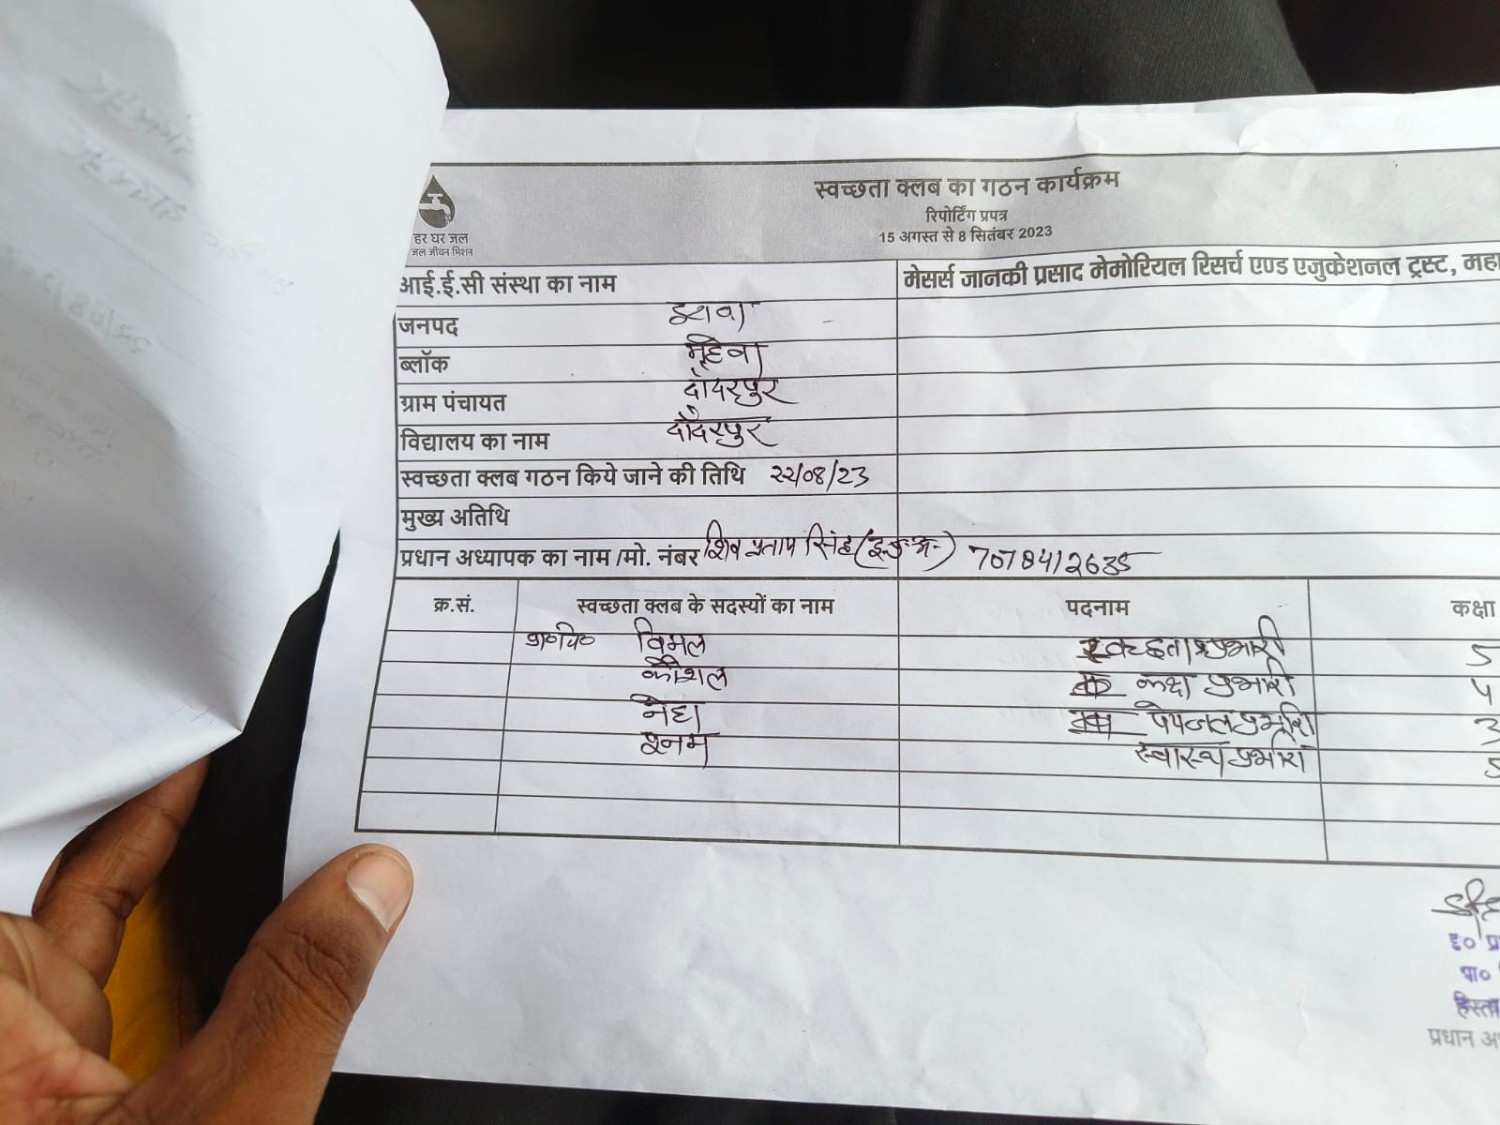 स्वच्छता क्लब का गठन कार्यक्रम
रिपोर्टिंग प्रपत्र
15 अगस्त से 8 सितंबर 2023
हर घर जल
जल जीवन मिशन
आई.ई.सी संस्था का नाम मेसर्स जानकी प्रसाद मेमोरियल रिसर्च एण्ड एजुकेशनल ट्रस्ट, महा
जनपद इटावा
ब्लॉक महेवा
ग्राम पंचायत दाँदरपुर
विद्यालय का नाम दाँदरपुर
स्वच्छता क्लब गठन किये जाने की तिथि 22/08/23
मुख्य अतिथि
प्रधान अध्यापक का नाम /मो. नंबर शिव प्रताप सिंह (इ.प्र.अ.) 7078412635
क्र.सं. स्वच्छता क्लब के सदस्यों का नाम पदनाम कक्षा
प्रा०वि० विमल स्वच्छता प्रभारी 5
कौशल कक्षा प्रभारी 4
नेहा पेयजल प्रभारी 3
स्वास्थ्य प्रभारी 5
इ० प्र
पा०
प्रधान अ